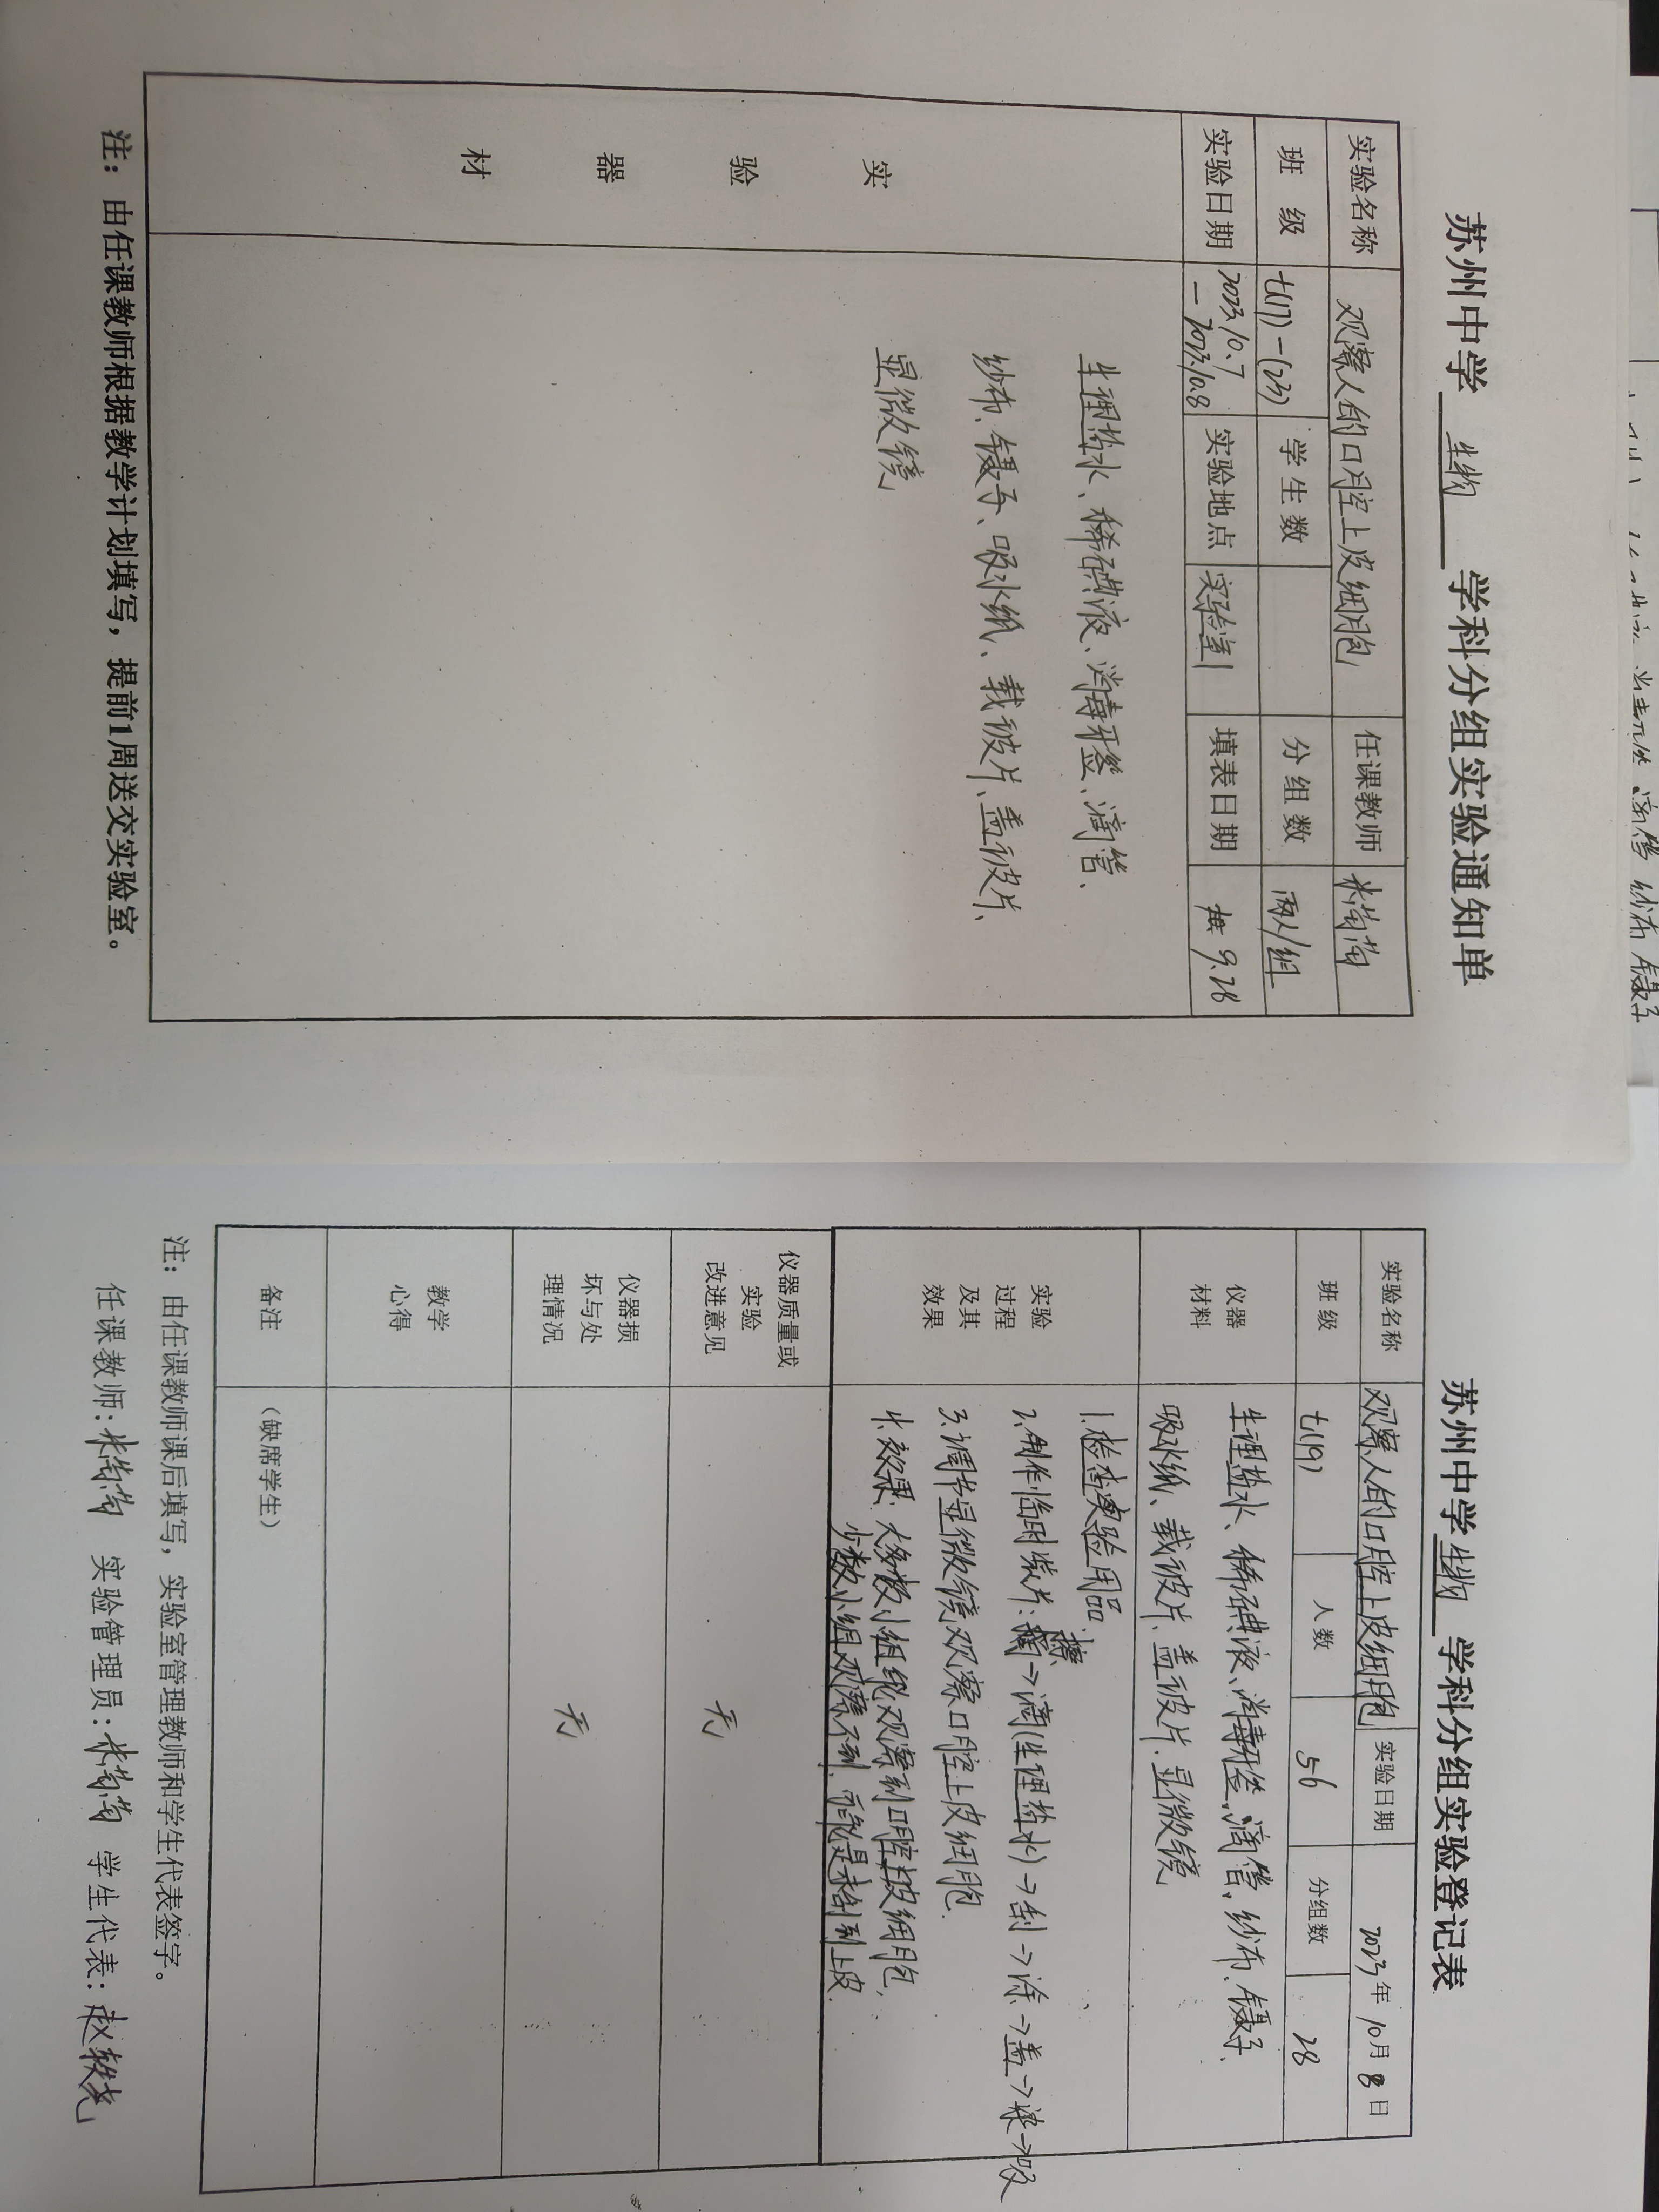 苏州中学 生物 学科分组实验通知单
实验名称 观察人的口腔上皮细胞 任课教师
班 级 七(17)-(23) 学生数 分组数 两人/组
实验日期 2023.10.7 - 2023.10.8 实验地点 实验室1 填表日期 9.28
实验器材
生理盐水、稀碘液、消毒牙签、滴管、
纱布、镊子、吸水纸、载玻片、盖玻片、
显微镜
注：由任课教师根据教学计划填写，提前1周送交实验室。
苏州中学 生物 学科分组实验登记表
实验名称 观察人的口腔上皮细胞 实验日期 2023年 10月 8日
班级 七(19) 人数 56 分组数 28
仪器材料
生理盐水、稀碘液、消毒牙签、滴管、纱布、镊子、
吸水纸、载玻片、盖玻片、显微镜
实验过程及其效果
1.检查实验用品.
2.制作临时装片：擦→滴(生理盐水)→刮→涂→盖→染→吸
3.调节显微镜观察口腔上皮细胞.
4.效果：大多数小组能观察到口腔上皮细胞,
少数小组观察不到，可能是未刮到上皮.
仪器质量或实验改进意见 无
仪器损坏与处理情况 无
教学心得
备注 （缺席学生）
注：由任课教师课后填写，实验室管理教师和学生代表签字。
任课教师： 实验管理员： 学生代表：赵